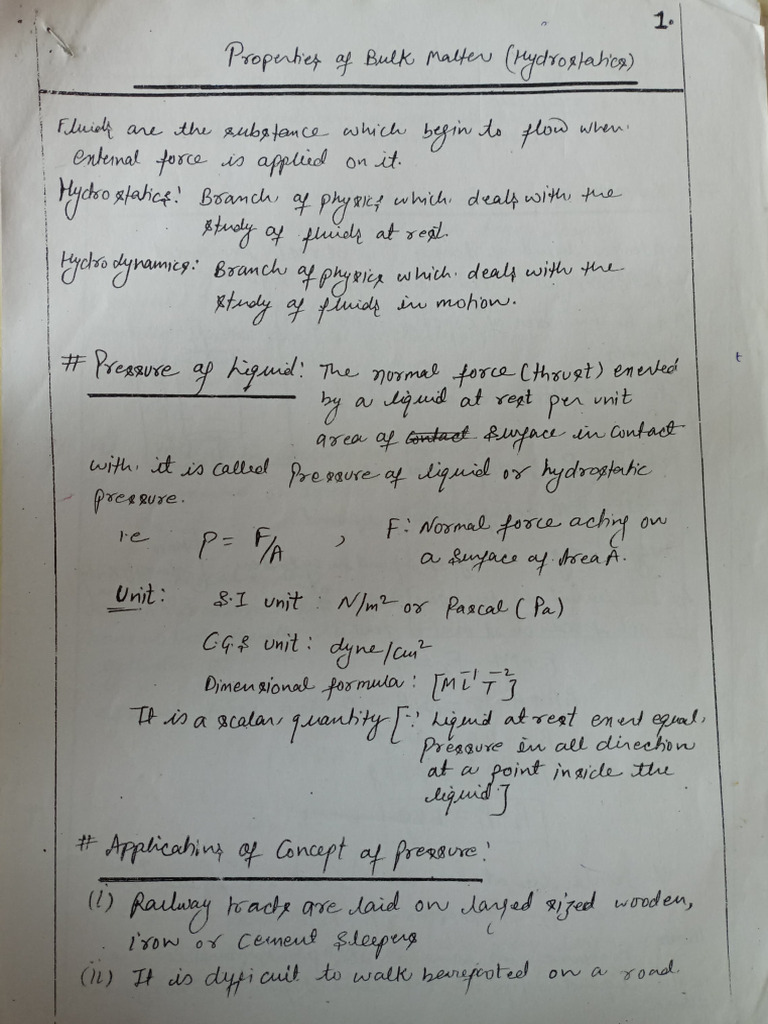 1.
Properties of Bulk Matter (Hydrostatics)
Fluids are the substance which begin to flow when
external force is applied on it.
Hydrostatics: Branch of physics which deals with the
study of fluids at rest.
Hydrodynamics: Branch of physics which deals with the
study of fluids in motion.
# Pressure of Liquid: The normal force (thrust) exerted
by a liquid at rest per unit
area of contact surface in contact
with it is called pressure of liquid or hydrostatic
pressure.
i.e P = F/A , F: Normal force acting on
a surface of Area A.
Unit: S.I unit : N/m² or Pascal (Pa)
C.G.S unit : dyne/cm²
Dimensional formula : [M L⁻¹ T⁻²]
It is a scalar quantity [∵ Liquid at rest exert equal
pressure in all direction
at a point inside the
liquid]
# Applications of Concept of Pressure:
(i) Railway tracts are laid on larged sized wooden,
iron or cement sleepers
(ii) It is dyfficult to walk barefooted on a road